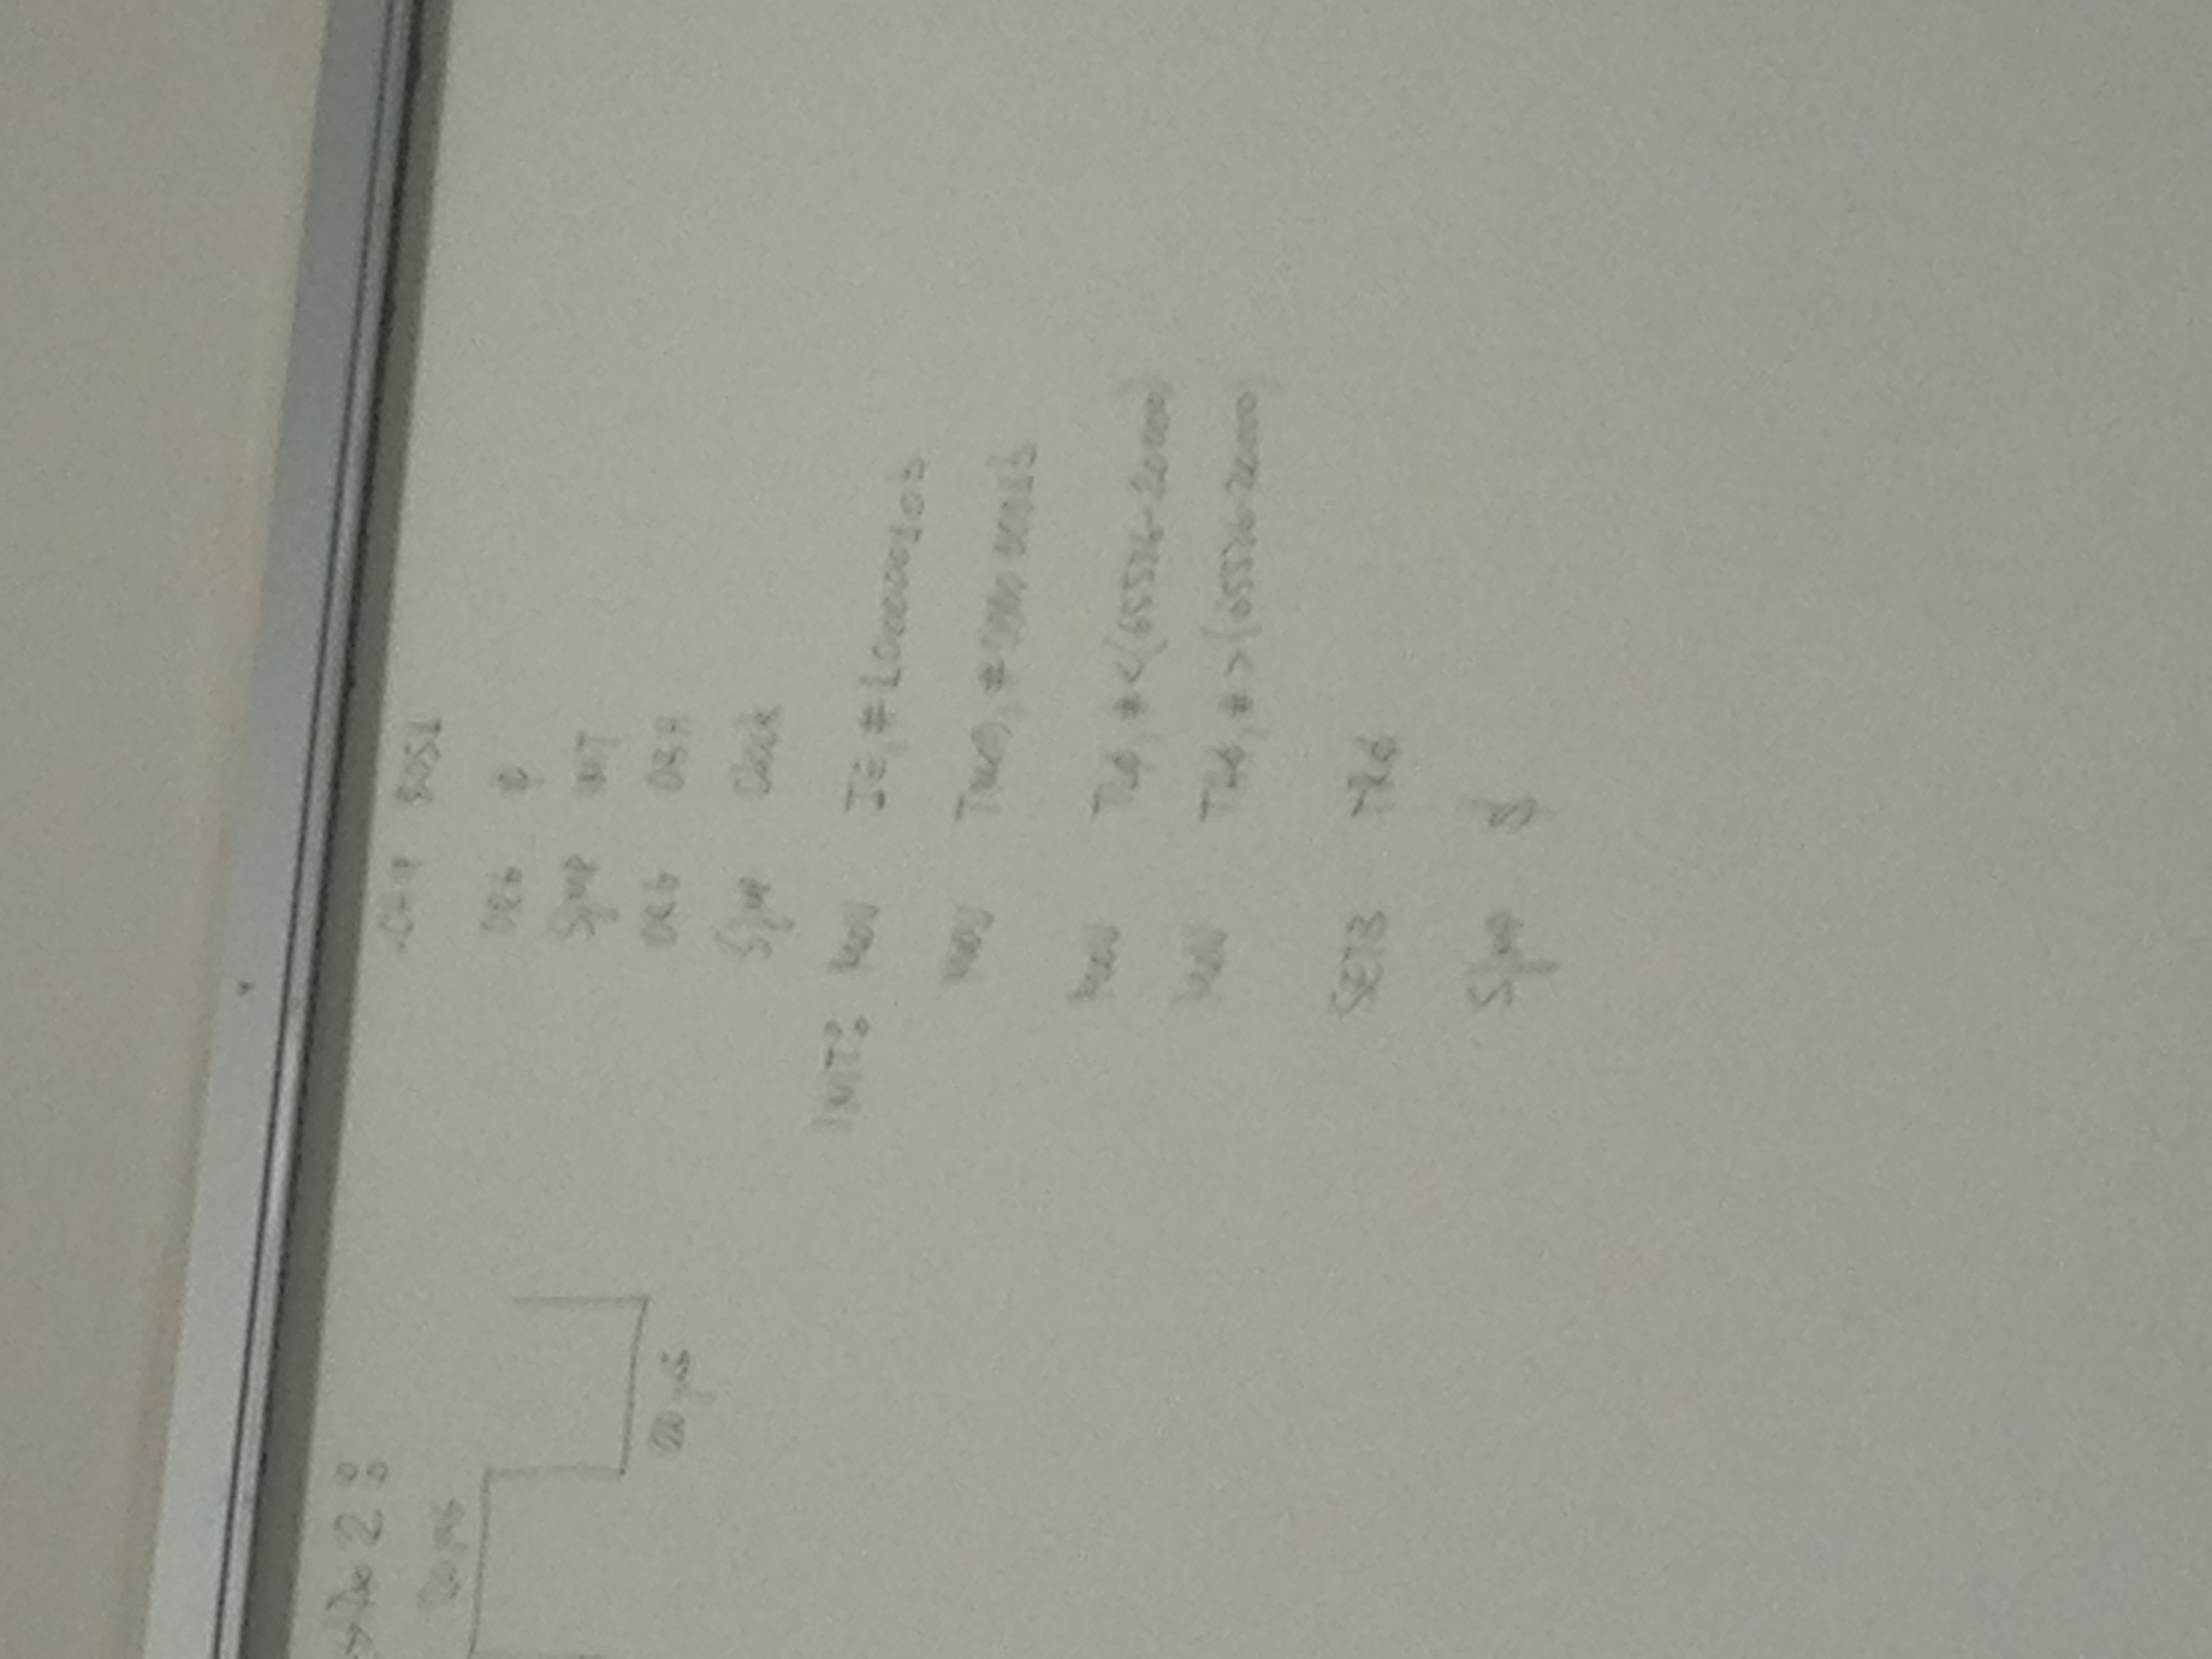 2:
20 ms
20 ms
CHIP 8051
ORG 0
Sjmp INIT
ORG 0BH
Sjmp Clock
INIT: MOV IE, #10000010b
MOV TMOD, #0000 0001b
MOV TL0, #<(65536-20000)
MOV TH0, #>(65536-20000)
SETB TR0
Sjmp $